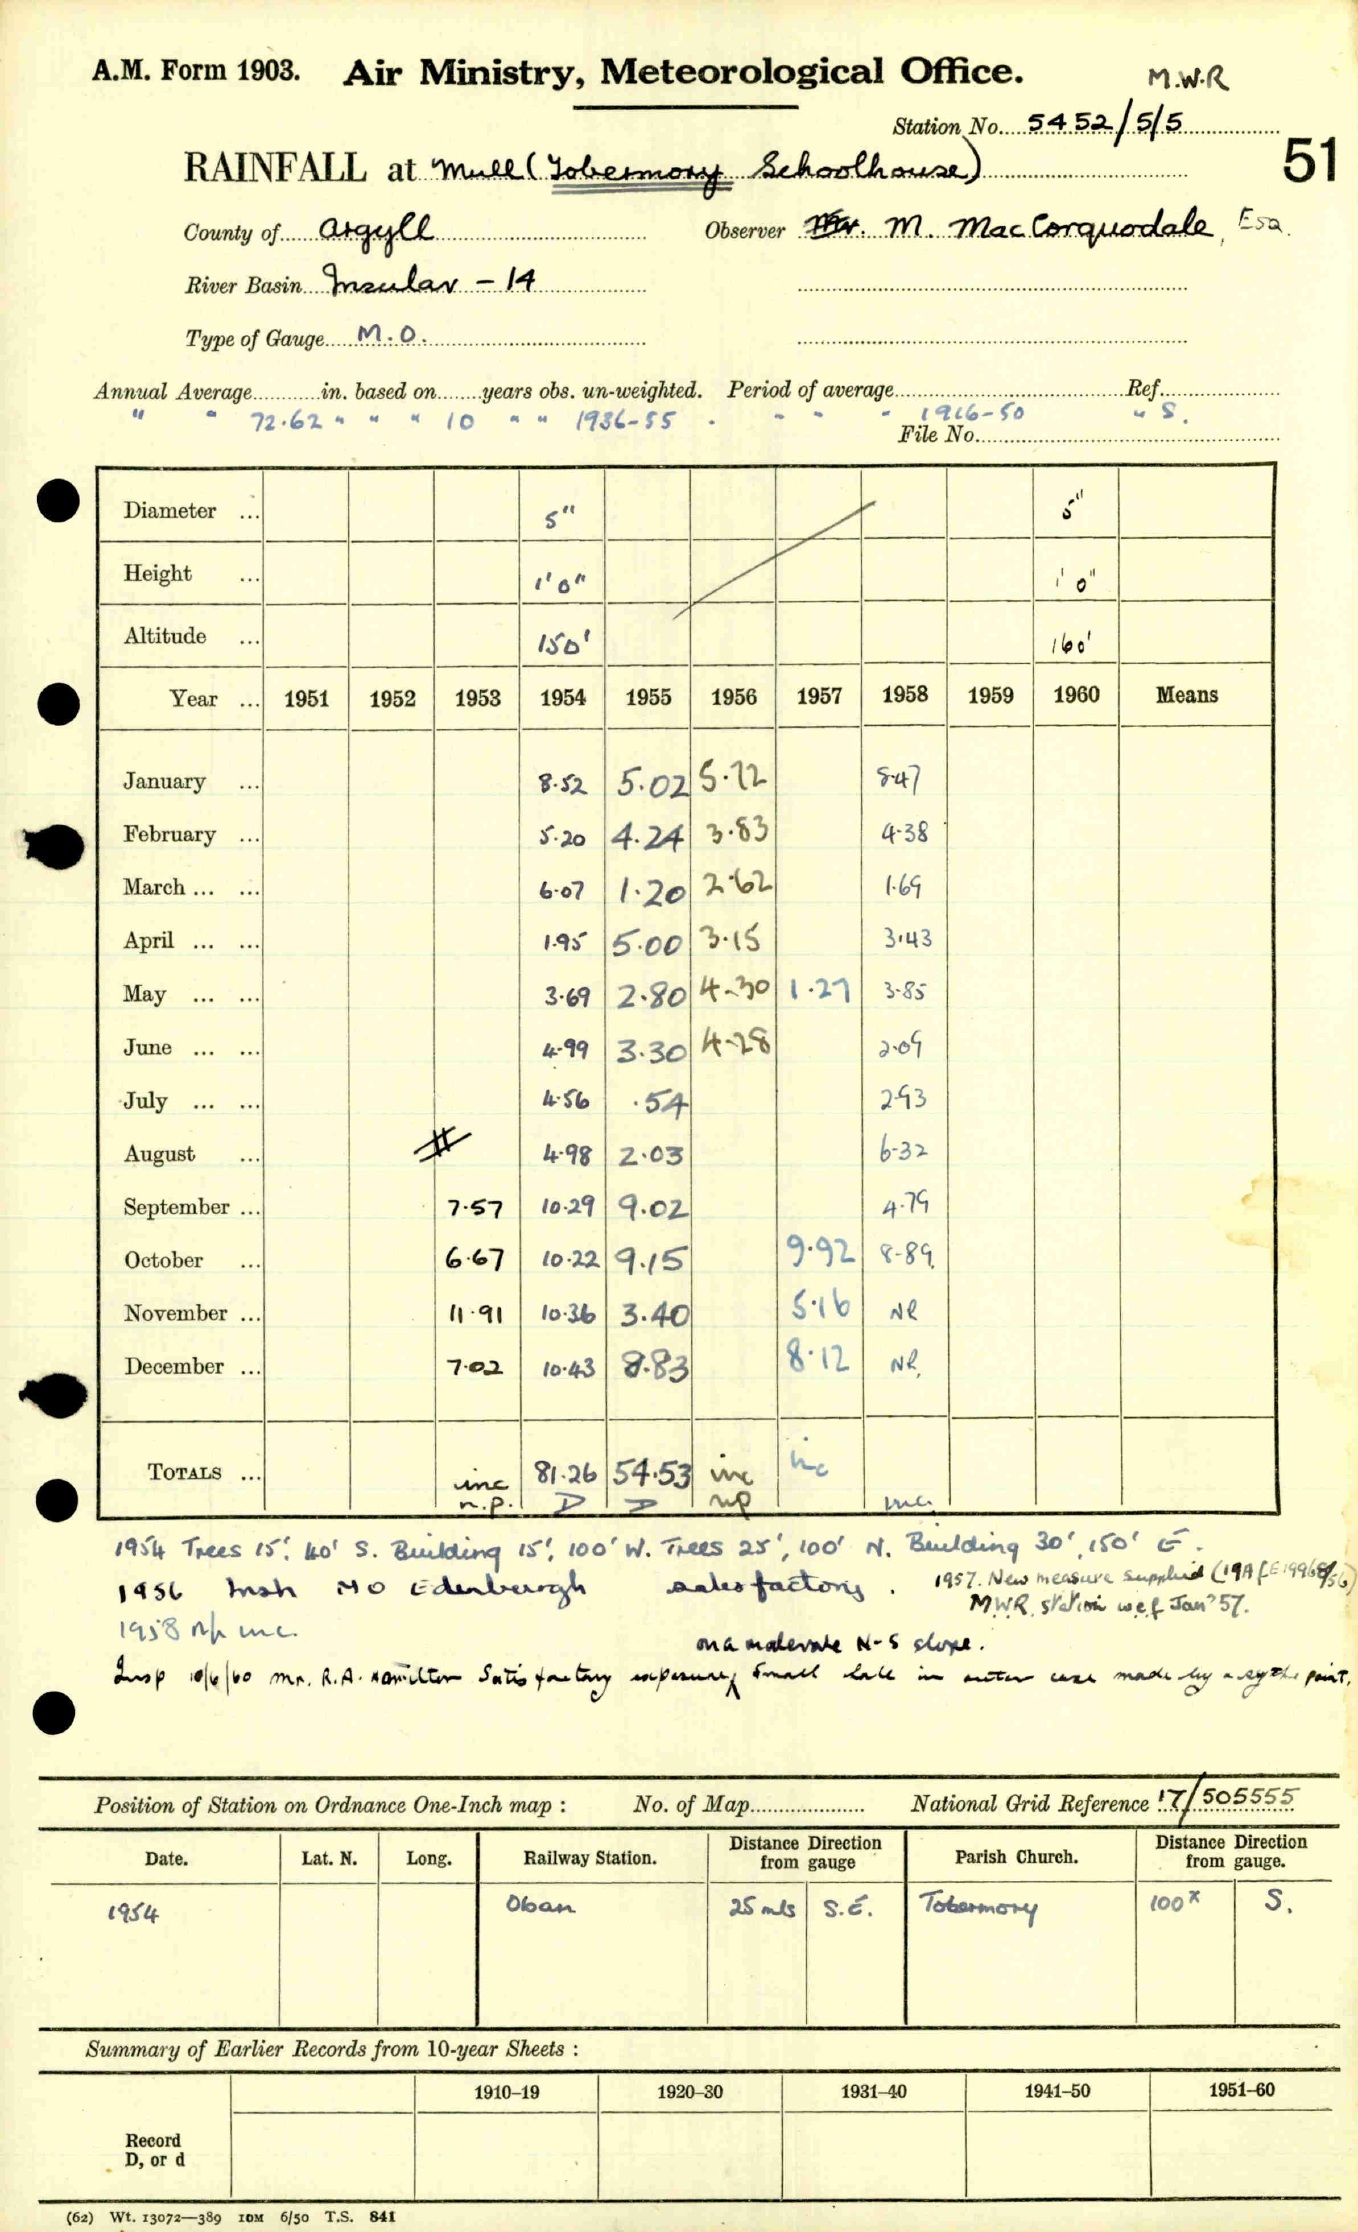 A.M. Form 1903. Air Ministry, Meteorological Office. M.W.R
Station No. 5452/5/5
RAINFALL at Mull (Tobermory Schoolhouse) 51
County of Argyll Observer Mr. M. MacCorquodale, Esq.
River Basin Insular - 14
Type of Gauge M.O.
Annual Average in. based on years obs. un-weighted. Period of average Ref.
" " 72.62 " " " 10 " " 1936-55 . " " " 1916-50 " S.
File No.
Diameter ... 5" 5"
Height ... 1'0" 1'0"
Altitude ... 150' 160'
Year ... 1951 1952 1953 1954 1955 1956 1957 1958 1959 1960 Means
January ... 8.52 5.02 5.72 5.47
February ... 5.20 4.24 3.83 4.38
March ... ... 6.07 1.20 2.62 1.69
April ... ... 1.95 5.00 3.15 3.43
May ... ... 3.69 2.80 4.30 1.27 3.85
June ... ... 4.99 3.30 4.28 2.09
July ... ... 4.56 .54 2.93
August ... 4.98 2.03 6.32
September ... 7.57 10.29 9.02 4.79
October ... 6.67 10.22 9.15 9.92 8.89
November ... 11.91 10.36 3.40 5.16 NR
December ... 7.02 10.43 8.83 8.12 NR
TOTALS ... inc 81.26 54.53 inc inc
n.p. D D np inc.
1954 Trees 15', 40' S. Building 15', 100' W. Trees 25', 100' N. Building 30', 150' E.
1956 Insn MO Edenberogh satisfactory. 1957. New measure supplied (19A f E19968/56)
MWR station wef Jan '57.
1958 n/p inc.
on a moderate N-S slope.
Insp 10/6/60 Mr. R.A. Hamilton Satisfactory exposure, Small hole in outer case made by a scythe point.
Position of Station on Ordnance One-Inch map : No. of Map National Grid Reference 17/505555
Date. Lat. N. Long. Railway Station. Distance Direction from gauge Parish Church. Distance Direction from gauge.
1954 Oban 25 mls S.E. Tobermory 100x S.
Summary of Earlier Records from 10-year Sheets :
1910–19 1920–30 1931–40 1941–50 1951–60
Record
D, or d
(62) Wt. 13072—389 10M 6/50 T.S. 841